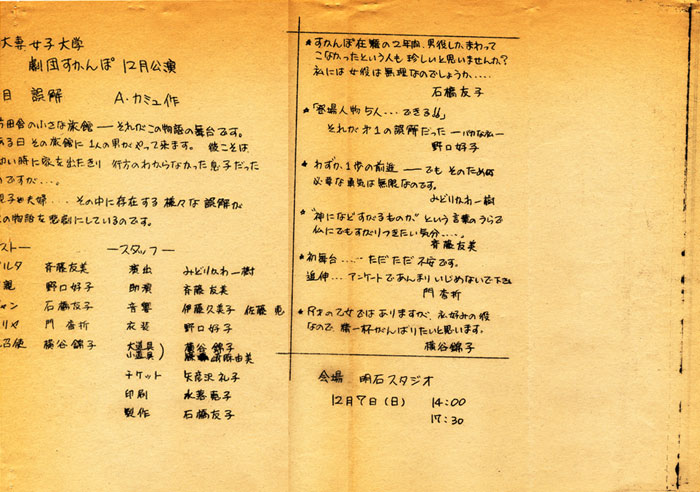 大妻女子大学
劇団すかんぽ 12月公演
目 誤解 A・カミュ作
田舎の小さな旅館 ── それがこの物語の舞台です。
ある日 その旅館に 1人の男がやって来ます。 彼こそは
幼い時に家を出たきり 行方のわからなかった息子だった
のですが…。
親子や夫婦... その中に存在する様々な誤解が
の物語を悲劇にしているのです。
スト── ─スタッフ─
ルタ 斉藤友美 演出 みどりかわ一樹
親 野口好子 助演 斉藤友美
ャン 石橋友子 音響 伊藤久美子 佐藤
リヤ 門 杏折 衣装 野口好子
召使 横谷錦子 大道具 小道具 横谷錦子 由美
チケット 矢彦沢礼子
印刷 恵子
製作 石橋友子
★ すかんぽ在籍の2年間、男役しか、まわって
こなかったという人も 珍しいと思いませんか?
私には 女役は無理なのでしょうか....
石橋友子
★ 「登場人物5人...できる!!」
それが 才1の誤解だった ─バカな私─
野口好子
★ わずか、1歩の前進 ── でも そのための
必要な勇気は無限なのです。
みどりかわ一樹
★ "神になどすがるものか" という言葉のうらで
仏にでもすがりつきたい気分.....
斉藤友美
★ 初舞台.... ただただ不安です。
追伸... アンケートであんまりいじめないで下さい
門 杏折
★ 才の乙女ではありますが、お好みの役
なので、精一杯がんばりたいと思います。
横谷錦子
会場 明石スタジオ
12月7日(日) 14:00
17:30